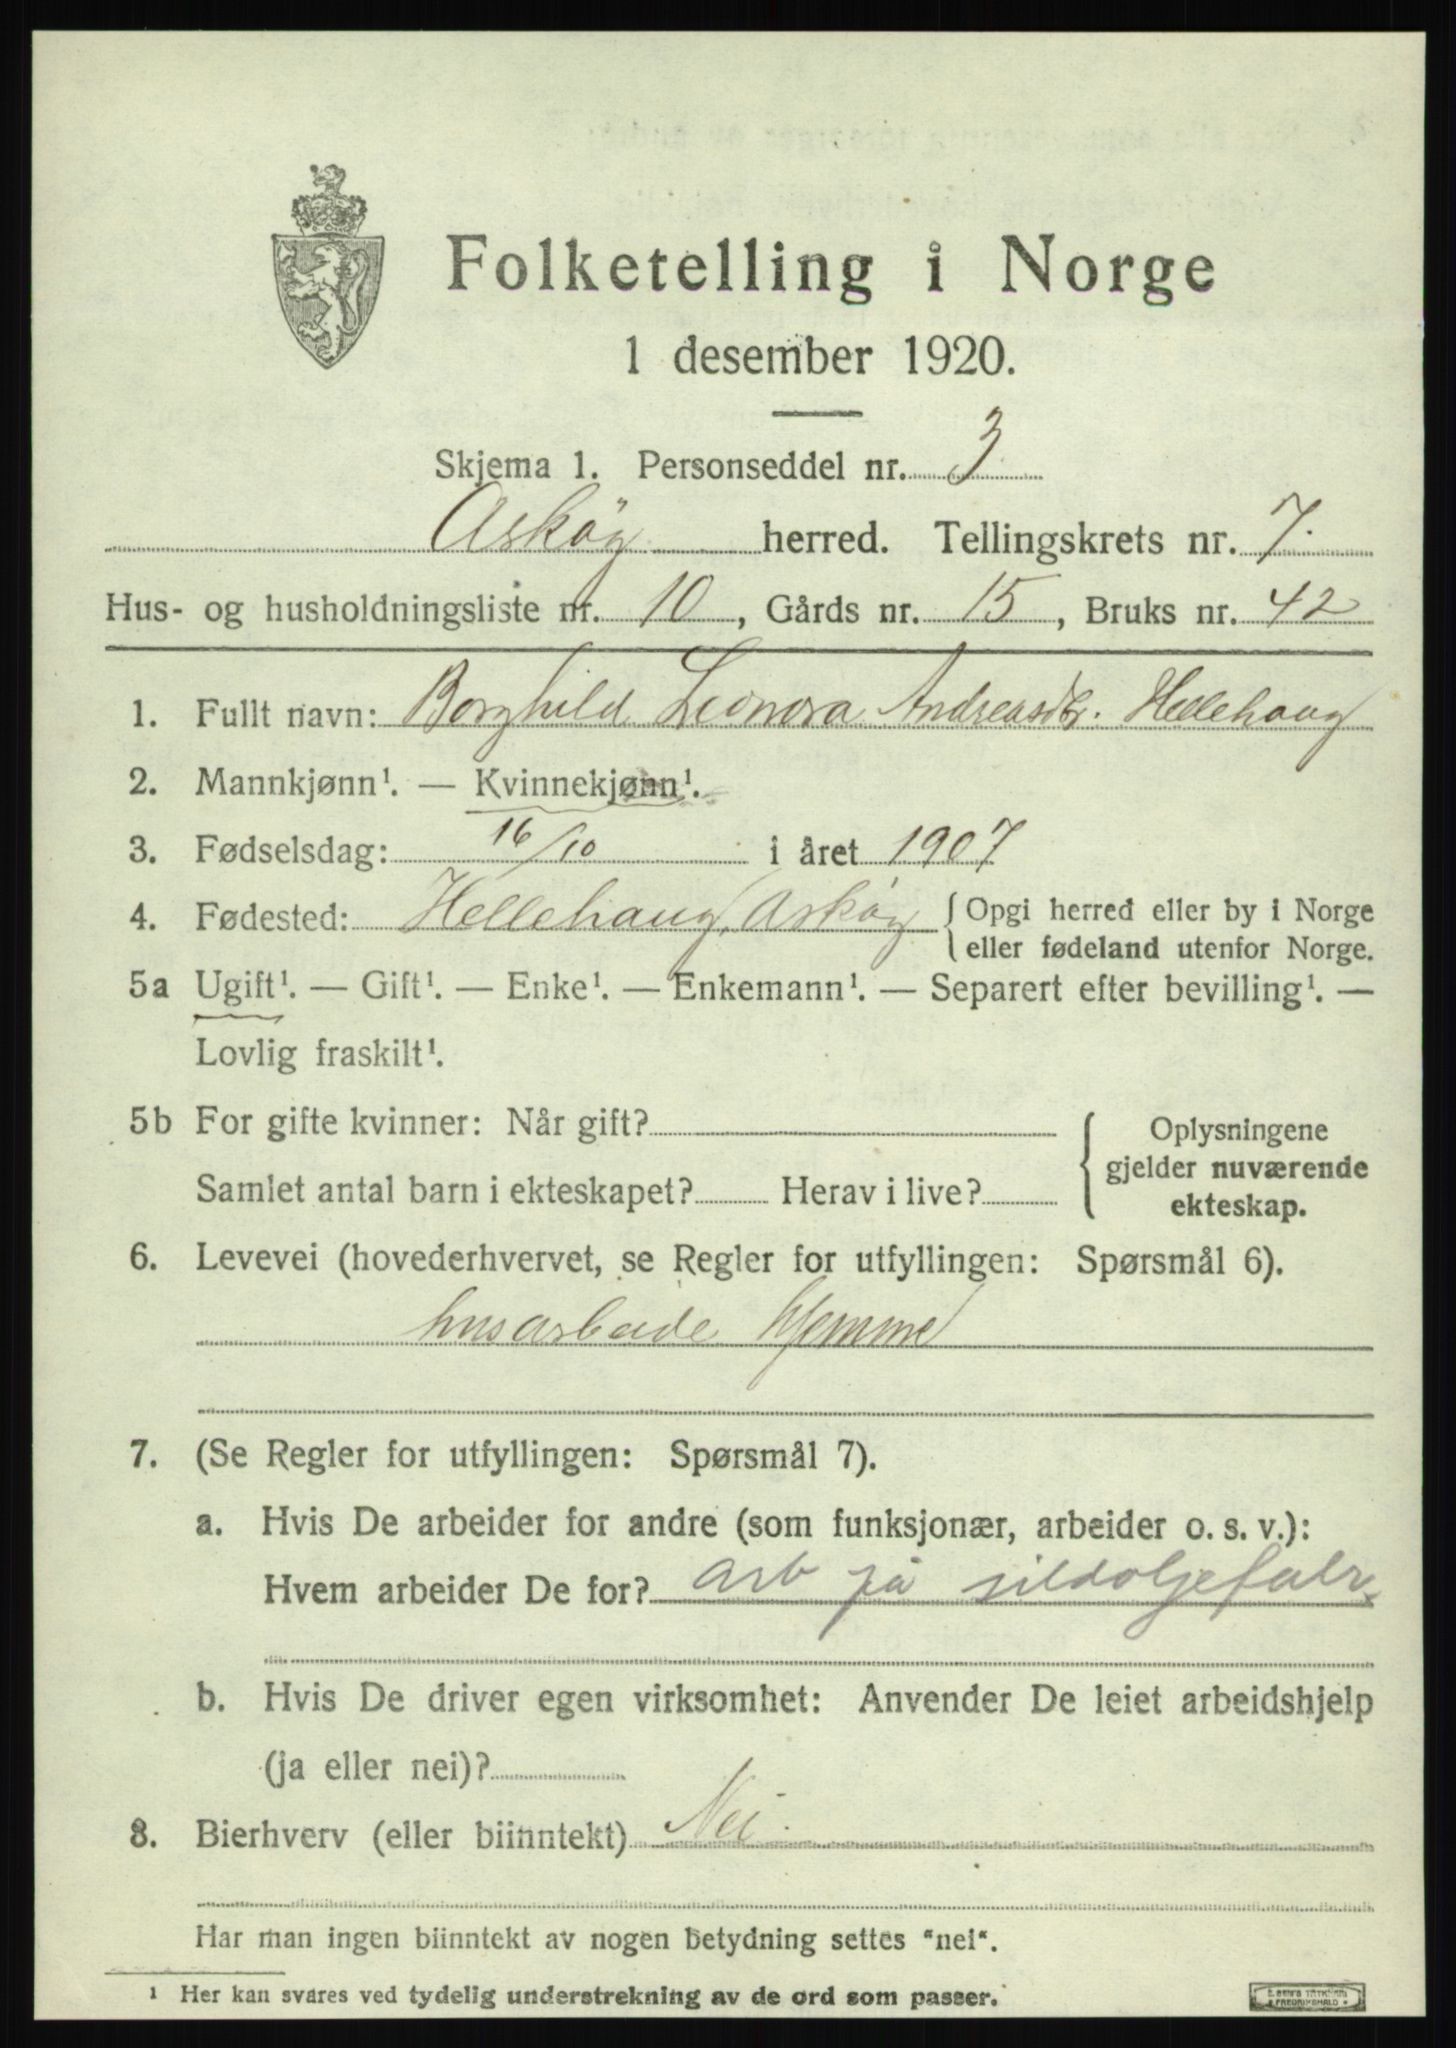 Folketelling i Norge
1 desember 1920.
Skjema 1. Personseddel nr. 3
Askøy herred. Tellingskrets nr. 7.
Hus- og husholdningsliste nr. 10, Gårds nr. 15, Bruks nr. 42
1. Fullt navn: Borghild Leonora Andreasdtr. Hellehaug
2. Mannkjønn¹. — Kvinnekjønn¹.
3. Fødselsdag: 16/10 i året 1907
4. Fødested: Hellehaug, Askøy { Opgi herred eller by i Norge
eller fødeland utenfor Norge.
5a Ugift¹. — Gift¹. — Enke¹. — Enkemann¹. — Separert efter bevilling¹. —
Lovlig fraskilt¹.
5b For gifte kvinner: Når gift?
Samlet antal barn i ekteskapet? Herav i live?
{ Oplysningene
gjelder nuværende
ekteskap.
6. Levevei (hovederhvervet, se Regler for utfyllingen: Spørsmål 6).
husarbeide hjemme
7. (Se Regler for utfyllingen: Spørsmål 7).
a. Hvis De arbeider for andre (som funksjonær, arbeider o. s. v.):
Hvem arbeider De for? arb på sildoljefabr.
b. Hvis De driver egen virksomhet: Anvender De leiet arbeidshjelp
(ja eller nei)?
8. Bierhverv (eller biinntekt) Nei.
Har man ingen biinntekt av nogen betydning settes "nei".
¹ Her kan svares ved tydelig understrekning av de ord som passer.